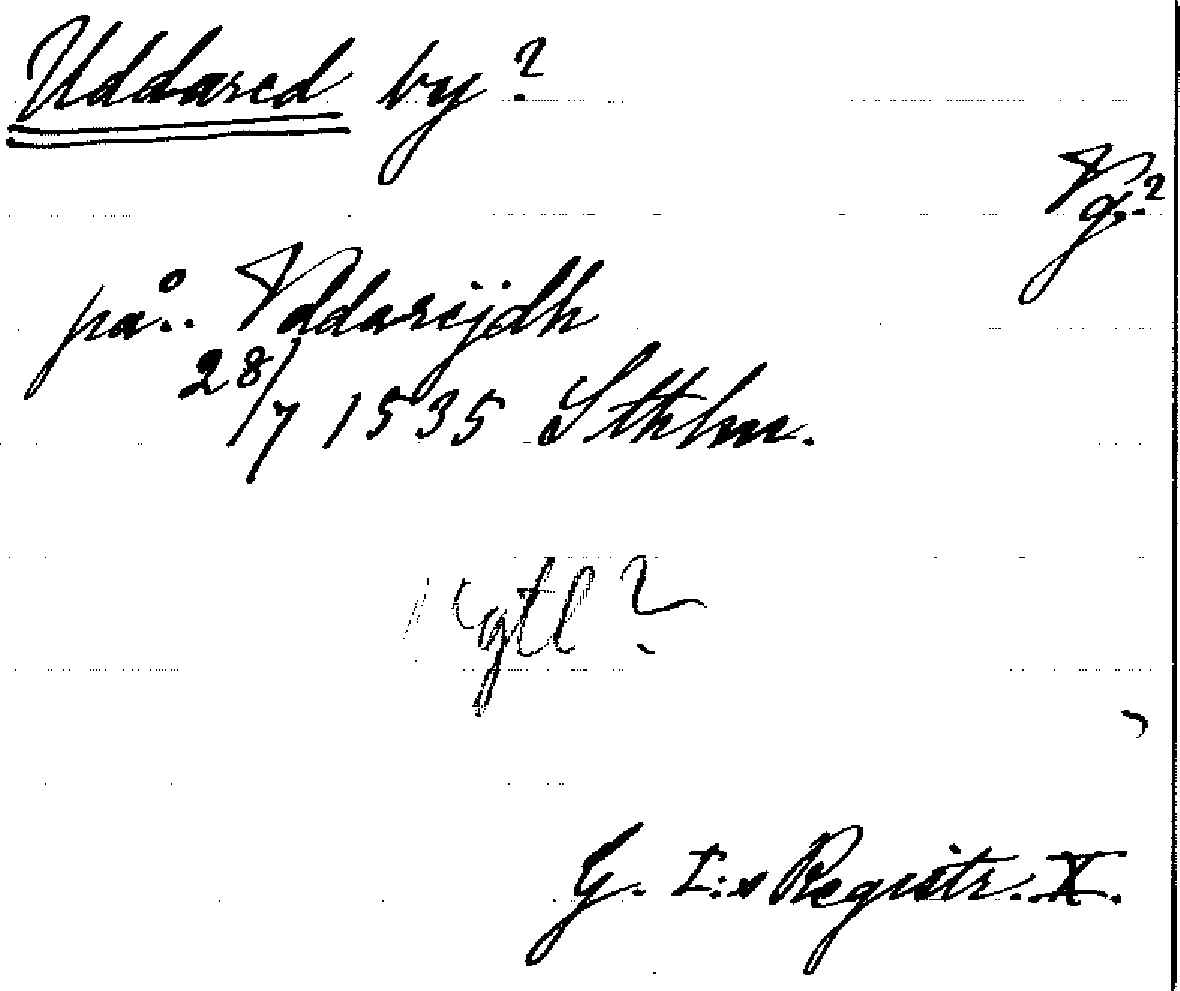 Uddared by?
Vg.?
på.. Vddarijdh
28/7 1535 Sthlm.
Kgtl?
G. I:s Registr. X.